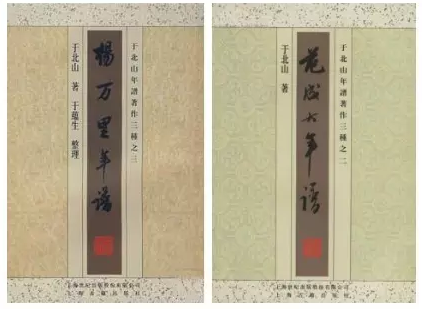 于北山年譜著作三種之三
楊万里年譜
于北山 著 于蘊生 整理
上海世紀出版股份有限公司
上海古籍出版社
于北山年譜著作三種之二
范成大年譜
于北山 著
上海世紀出版股份有限公司
上海古籍出版社